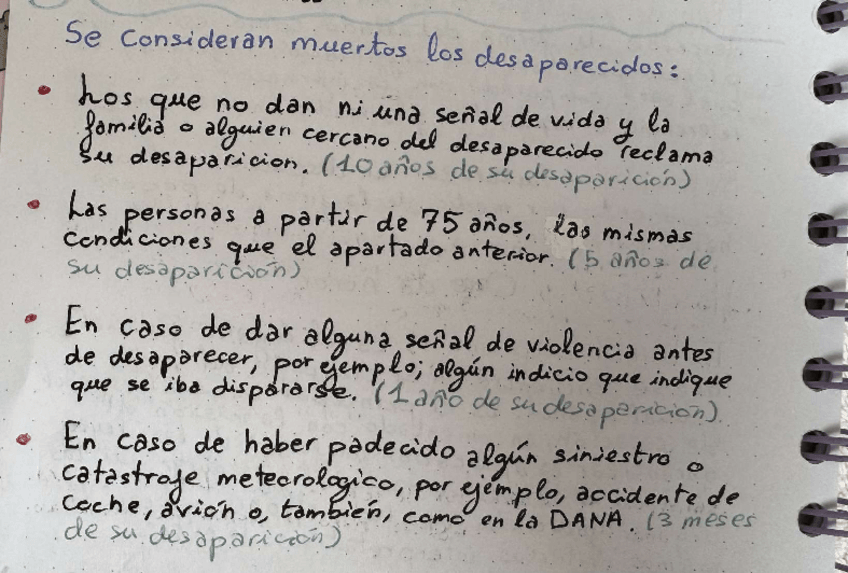 Se consideran muertos los desaparecidos:
• Los que no dan ni una señal de vida y la
familia o alguien cercano del desaparecido reclama
su desaparicion. (10 años de su desaparición)
• Las personas a partir de 75 años, las mismas
condiciones que el apartado anterior. (5 años de
su desaparición)
• En caso de dar alguna señal de violencia antes
de desaparecer, por ejemplo; algún indicio que indique
que se iba dispararse. (1 año de su desaparición)
• En caso de haber padecido algún siniestro o
catastrofe meteorologico, por ejemplo, accidente de
coche, avión o, también, como en la DANA. (3 meses
de su desaparición)